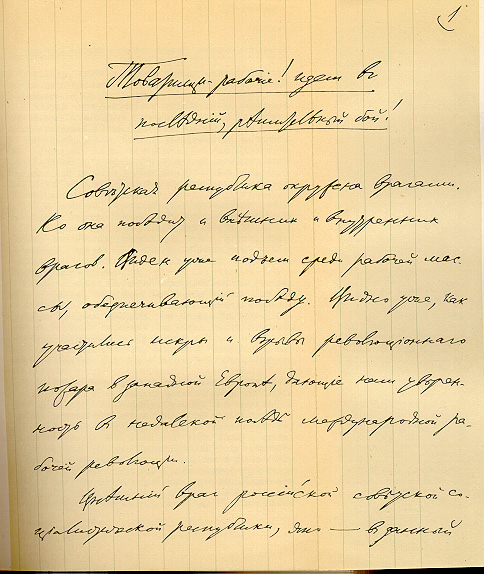 1
Товарищи-рабочіе! Идем въ
последній, решительный бой!
Советская республика окружена врагами.
Но она победит и внешних и внутренних
врагов. Виден уже подъем среди рабочей мас-
сы, обеспечивающій победу. Видно уже, как
участились искры и взрывы революціонного
пожара в западной Европе, дающіе нам уверен-
ность в недалекой победе международной ра-
бочей революціи.
Внешний враг российской советской со-
циалистической республики, это — в данный